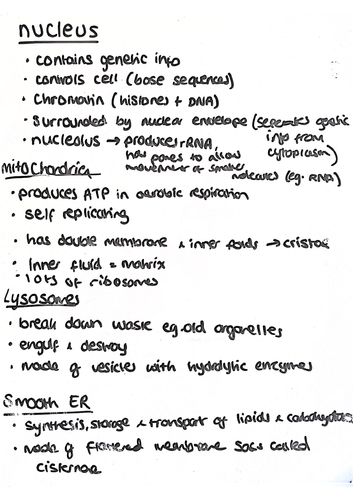 nucleus
• contains genetic info
• controls cell (base sequences)
• Chromatin (histones + DNA)
• Surrounded by nuclear envelope (seperates genetic info from cytoplasm)
• nucleolus → produces rRNA,
has pores to allow
movement of smaller
molecules (eg. RNA)
Mitochondria
• produces ATP in aerobic respiration
• self replicating
• has double membrane & inner folds → cristae
• Inner fluid = matrix
• lots of ribosomes
Lysosomes
• break down waste eg.old organelles
• engulf & destroy
• made of vesicles with hydrolytic enzymes
Smooth ER
• synthesis, storage & transport of lipids & carbohydrates
• made of flattened membrane sacs called
cisternae